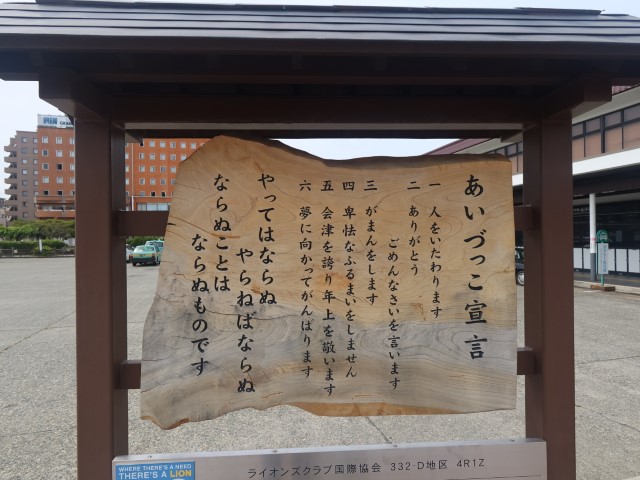 あいづっこ宣言
一 人をいたわります
二 ありがとう
ごめんなさいを言います
三 がまんをします
四 卑怯なふるまいをしません
五 会津を誇り年上を敬います
六 夢に向かってがんばります
やってはならぬ
やらねばならぬ
ならぬことは
ならぬものです
WHERE THERE'S A NEED
THERE'S A LION
ライオンズクラブ国際協会 332-D地区 4R1Z